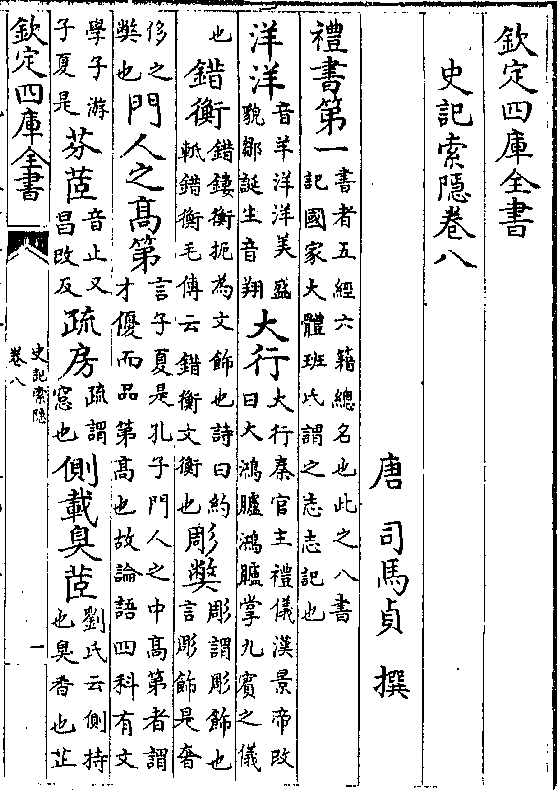 欽定四庫全書
史記索隱卷八
唐 司馬貞 撰
禮書第一書者五經六籍總名也此之八書
記國家大體班氏謂之志志記也
洋洋音羊洋洋美盛
貌鄒誕生音翔大行大行秦官主禮儀漢景帝改
曰大鴻臚鴻臚掌九賓之儀
也錯衡錯鏤衡扼為文飾也詩曰約
軝錯衡毛傳云錯衡文衡也彫獘彫謂彫飾也
言彫飾是奢
侈之
獘也門人之髙第言子夏是孔子門人之中髙第者謂
才優而品第髙也故論語四科有文
學子游
子夏是芬茝音止又
昌改反疏房疏謂
窓也側載臭茝劉氏云側持
也臭香也芷
欽定四庫全書
史記索隱
卷八
一